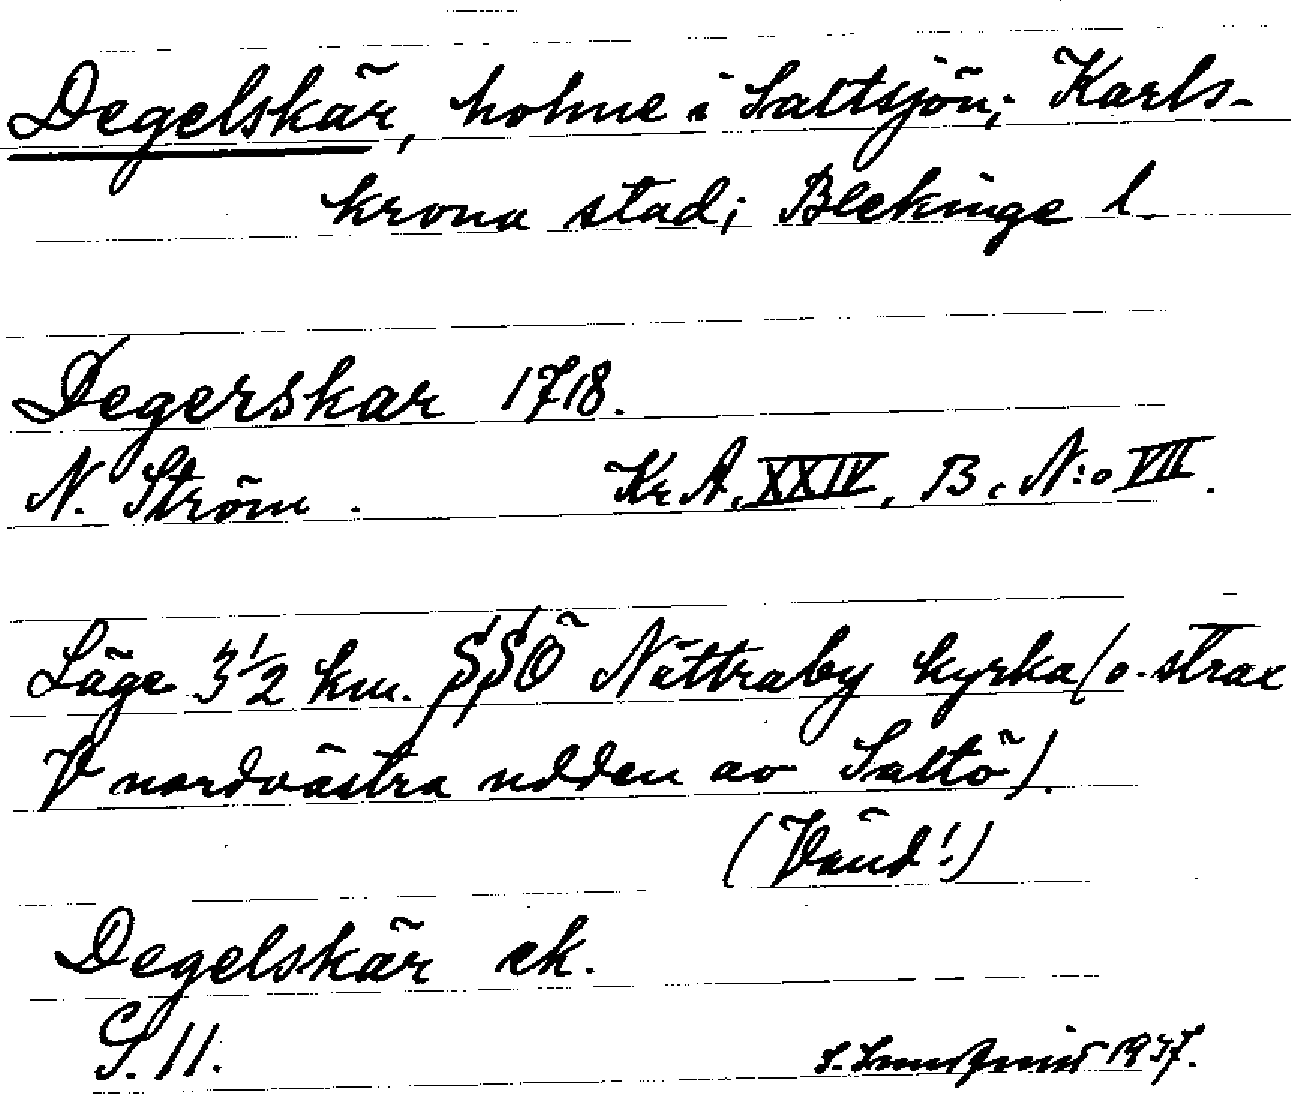 Degelskär, holme i Saltsjön; Karls-
krona stad; Blekinge l.
Degerskar 1718.
N. Ström. Kr A, XXIV, B, N:o VII.
Läge 3 1/2 km. SSÖ Nättraby kyrka (o. strax
V nordvästra udden av Saltö).
(Vänd!)
Degelskär ek.
S. 11. 1937.